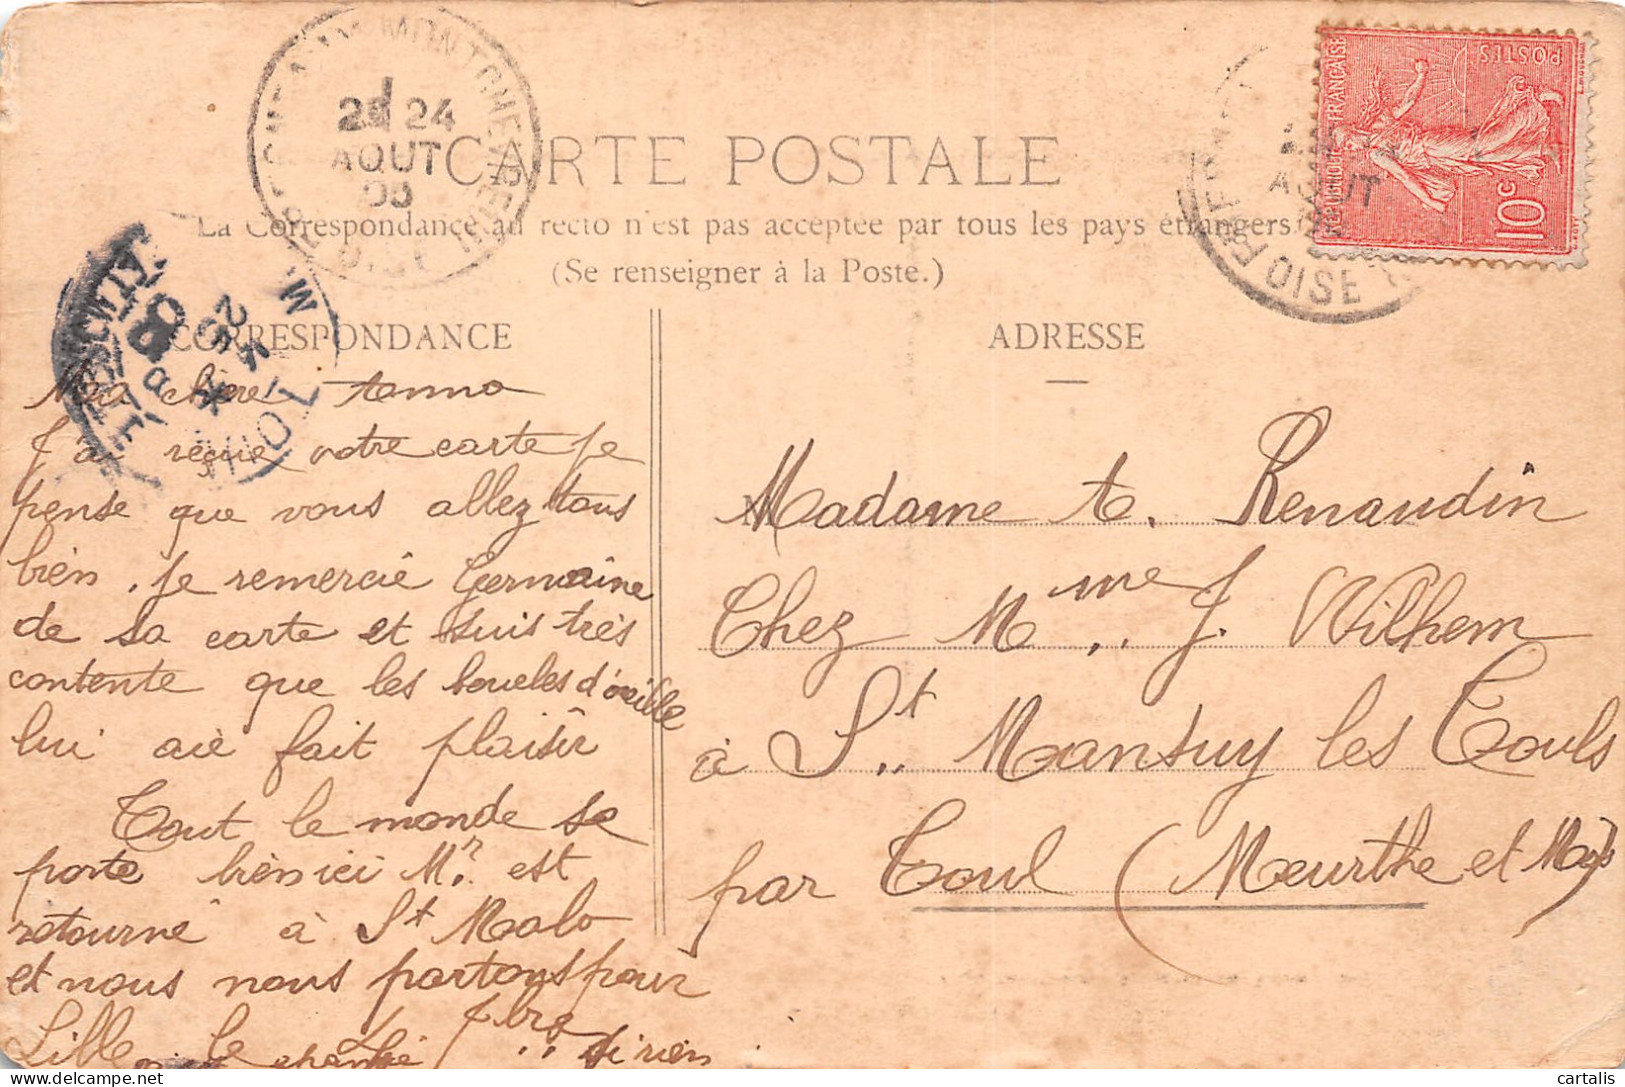 CARTE POSTALE
La Correspondance au recto n'est pas acceptée par tous les pays étrangers
(Se renseigner à la Poste.)
CORRESPONDANCE
Ma chère Anna
J'ai reçue votre carte je
pense que vous allez tous
bien. Je remercie Germaine
de sa carte et suis très
contente que les boucles d'oreille
lui aie fait plaisir
Tout le monde se
porte bien ici Mr. est
retourné à St Malo
et nous nous partons pour
Lille le 7bre si rien
n'est changé
ADRESSE
Madame A. Renaudin
Chez Mme J. Wilhem
à St. Mansuy les Touls
par Toul (Meurthe et Mlle)
24
AOUT
OISE
AOUT
OISE
TOUL
25
POSTES
REPUBLIQUE FRANÇAISE
10 c
cartalis